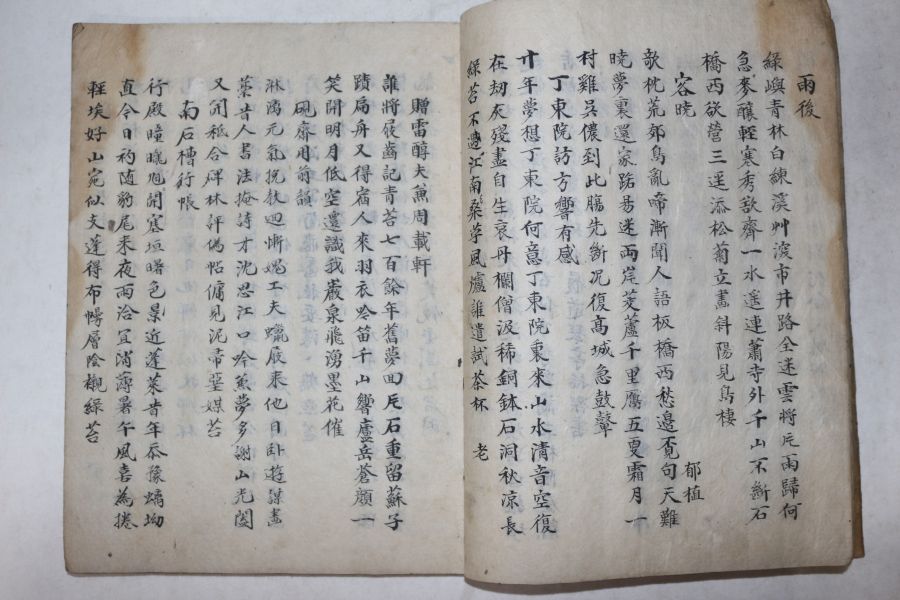 雨後
綠嶼青林白練溪艸深市井路全迷雲將片雨歸何
急麥釀輕寒秀欲齊一水遥連蕭寺外千山不斷石
橋西欲營三逕添松菊立盡斜陽見鳥棲
客曉 郁植
欹枕荒郊鳥亂啼漸聞人語板橋西愁邊覓句天難
曉夢裏還家路易迷兩岸菱蘆千里鴈五更霜月一
村雞吳儂到此腸先斷況復髙城急鼓鼙
丁東院訪方響有感
十年夢想丁東院何意丁東院裏來山水清音空復
在刼灰殘盡自生哀丹欄僧汲稀銅鉢石洞秋涼長
綠苔不過江南桑苧風爐誰遣試茶杯 老
贈雷醇夫兼周載軒
誰將屐齒記青苔七百餘年舊夢回片石重留蘇子
蹟扁舟又得宿人來羽衣吟笛千山響廬岳蒼顔一
笑開明月低空還識我巖泉飛湧墨花催
硯齋用前韻
淋漓元氣挽敎迴慚媿工夫蠟屐來他日卧遊謀畫
藁昔人書法掩詩才沈思江口吟魚夢多謝山光閣
又開秪合碑林評偽帖傭見泥帚堊媒苔
南石槽行帳
行殿曈曨旭開塞垣曙色景近蓬萊昔年忝豫螭坳
直今日礿随豹尾来夜雨洽宜消薄暑午風喜為捲
輕埃好山宛似文蓬得布幔層陰襯綠苔